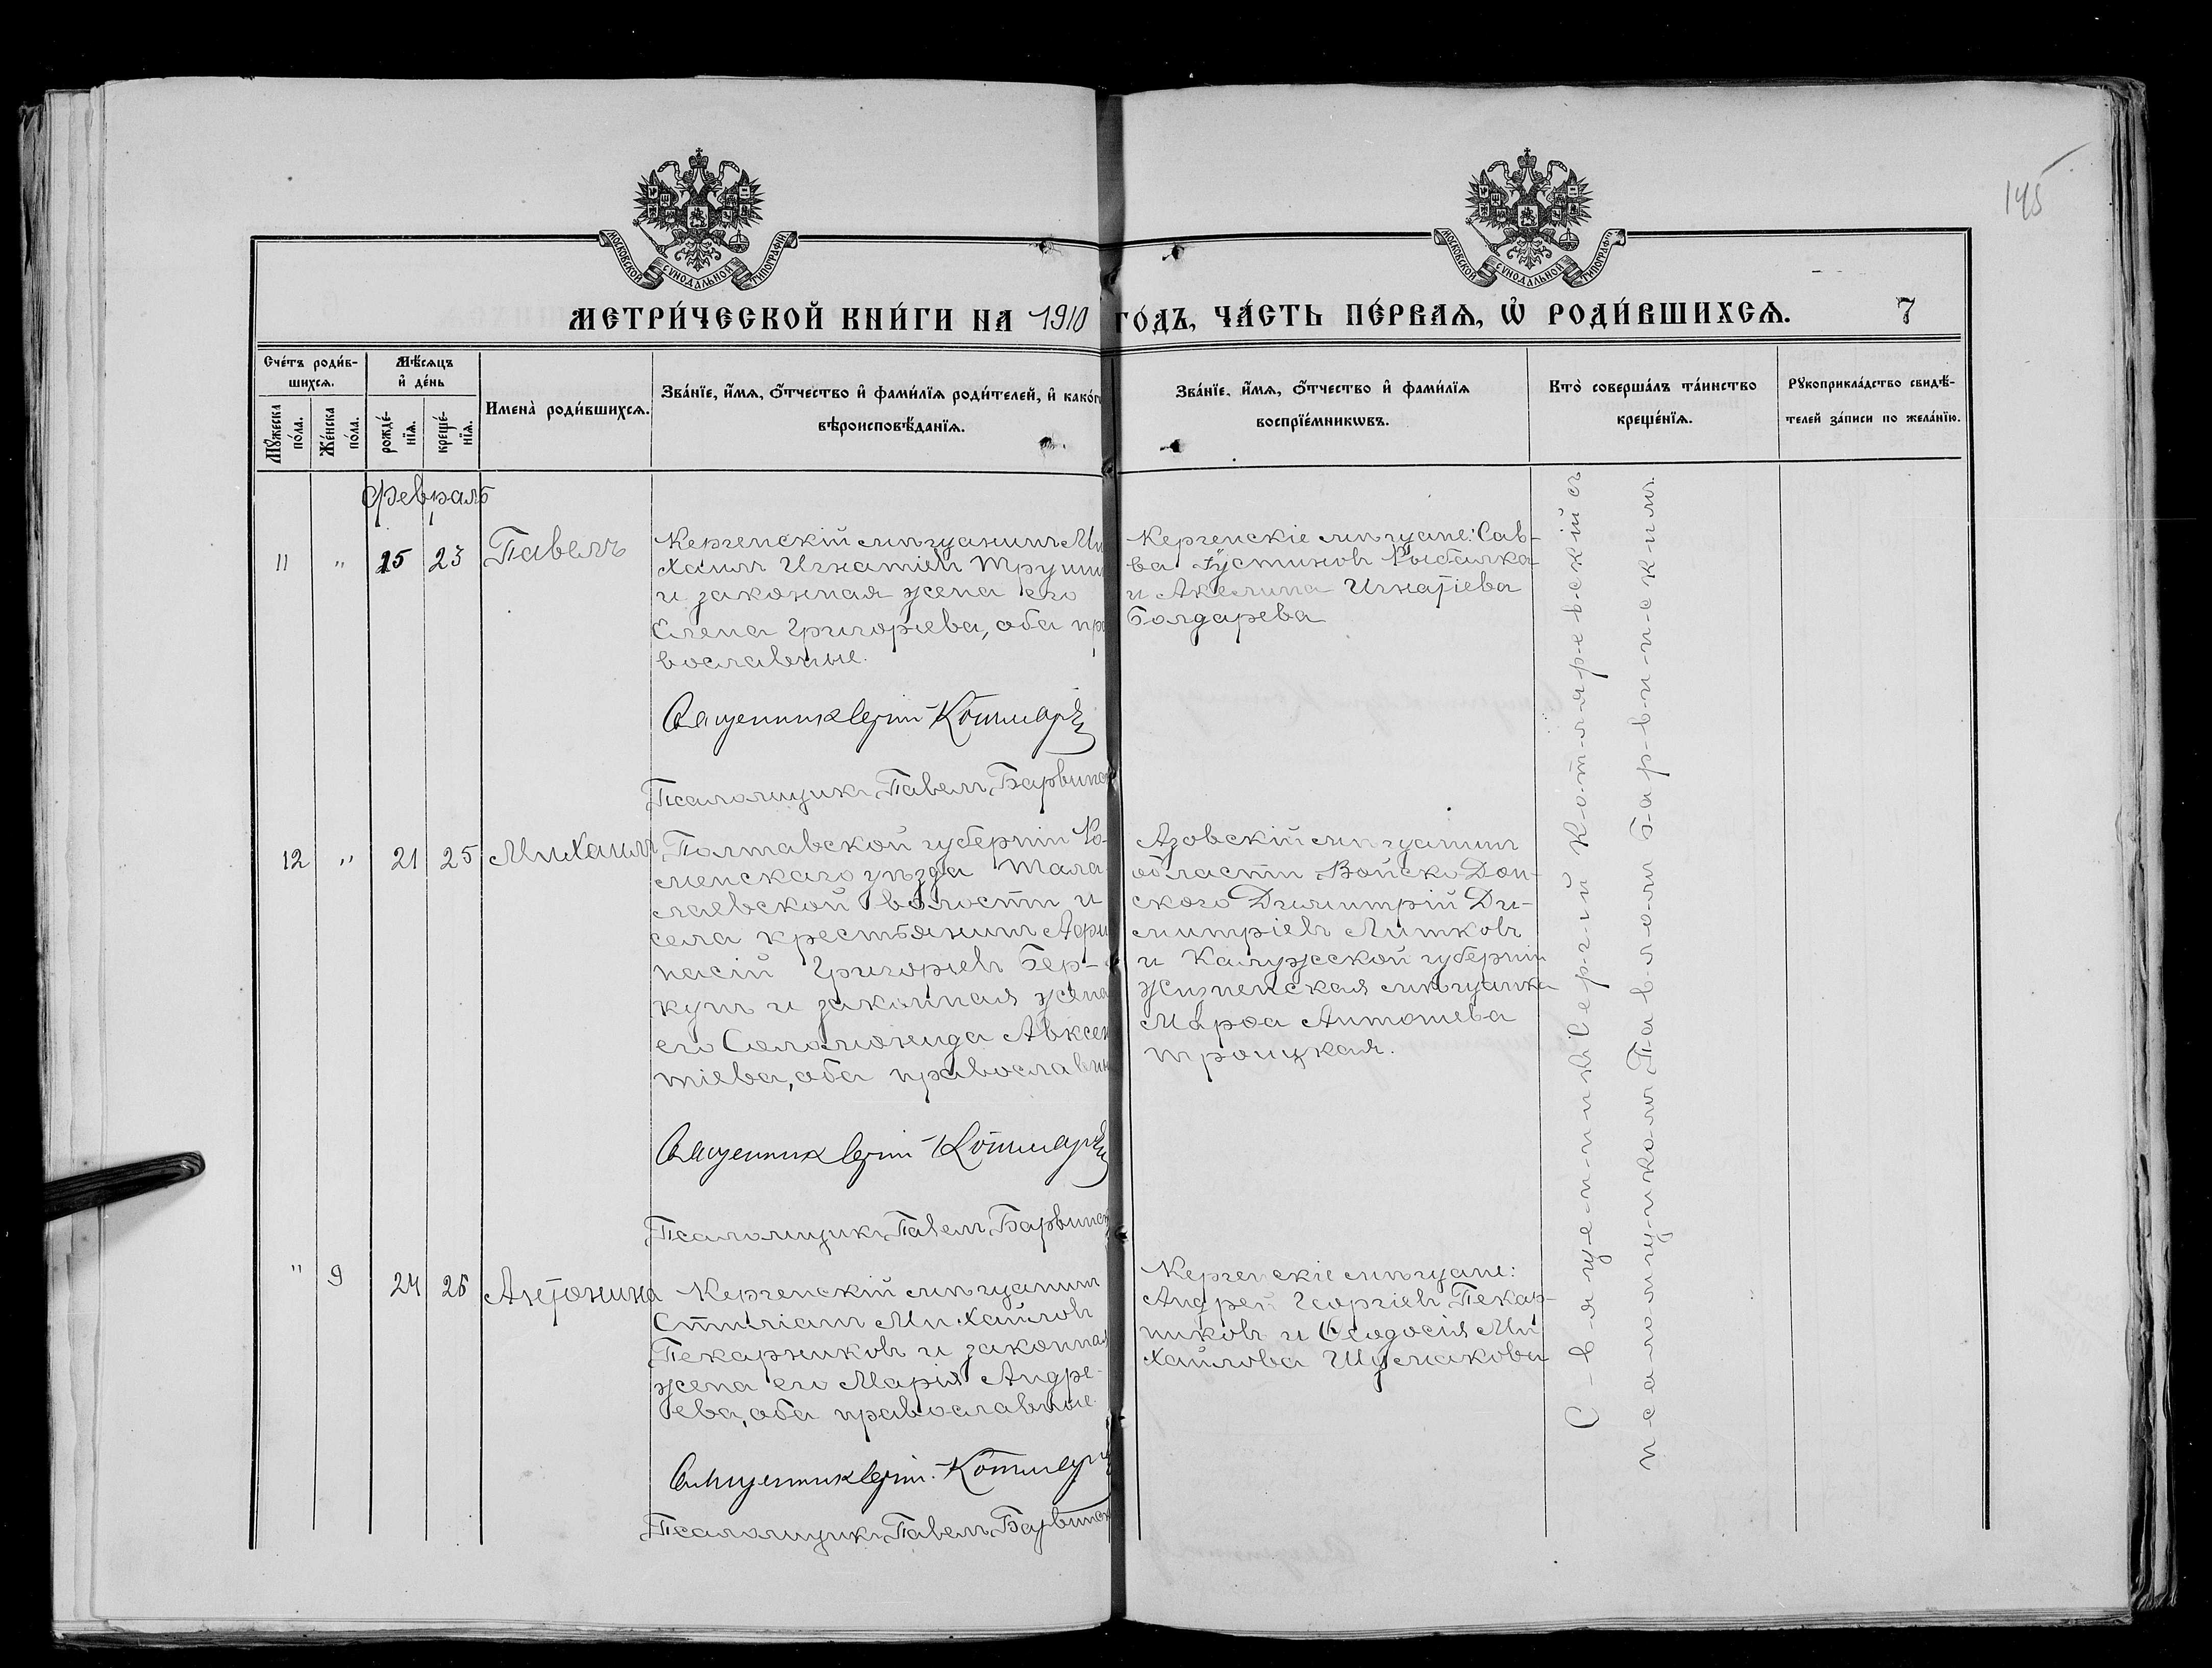 145
МОСКОВСКОЙ СѴНОДАЛЬНОЙ ТИПОГРАФІИ
МОСКОВСКОЙ СѴНОДАЛЬНОЙ ТИПОГРАФІИ
МЕТРИ́ЧЕСКОЙ КНИ́ГИ НА 1910 ГО́ДЪ, ЧА́СТЬ ПЕ́РВАѦ, Ѽ РОДИ́ВШИХСѦ. 7
Сче́тъ роди́в-
шихсѧ.
Мꙋ́жеска
по́ла.
Же́нска
по́ла.
Мѣ́сѧцъ
и҆ де́нь
рожде́-
нїѧ.
креще́-
нїѧ.
Имена̀ роди́вшихсѧ.
Зва́нїе, и҆́мѧ, ѻ҆́тчество и҆ фами́лїѧ роди́телей, и҆ како́г
вѣроисповѣ́данїѧ.
Зва́нїе, и҆́мѧ, ѻ҆́тчество и҆ фами́лїѧ
воспрїе́мникѡвъ.
Кто̀ соверша́лъ та́инство
креще́нїѧ.
Рꙋкоприкла́дство свидѣ́-
телей за́писи по жела́нїю.
Февраль
11 " 15 23 Павелъ
Керченскій мѣщанинъ Ми
хаилъ Игнатіевъ Труши
и законная жена его
Елена Григорьева, оба пра
вославные.
Священникъ Сергій Котляр
Псаломщикъ Павелъ Барвинск
Керченскіе мѣщане: Сав-
ва Іустиновъ Рыбалка
и Акелина Игнатіева
Болдарева
12 " 21 25 Михаилъ
Полтавской губерніи Ро-
менскаго уѣзда Тала-
лаевской волости и
села крестьянинъ Афи
насій Григорьевъ Бер-
кунъ и законная жена
его Соломонида Авксен
тіева, оба православн
Священникъ Сергій Котляр
Псаломщикъ Павелъ Барвинск
Азовскій мѣщанинъ
области Войска Дон-
ского Димитрій Ди-
митріевъ Литковъ
и Калужской губерніи
Жизненская мѣщанка
Марѳа Антоніева
Троицкая.
" 9 24 25 Антонина
Керченскій мѣщанинъ
Стиліанъ Михайловъ
Пекарниковъ и законная
жена его Марія Андре-
ева, оба православные
Священникъ Сергій Котляр
Псаломщикъ Павелъ Барвинск
Керченскіе мѣщане:
Андрей Георгіевъ Пекар-
никовъ и Ѳеодосія Ми
хайлова Шумакова
Священникъ Сергій Котляревскій съ
псаломщикомъ Павломъ Барвинскимъ.